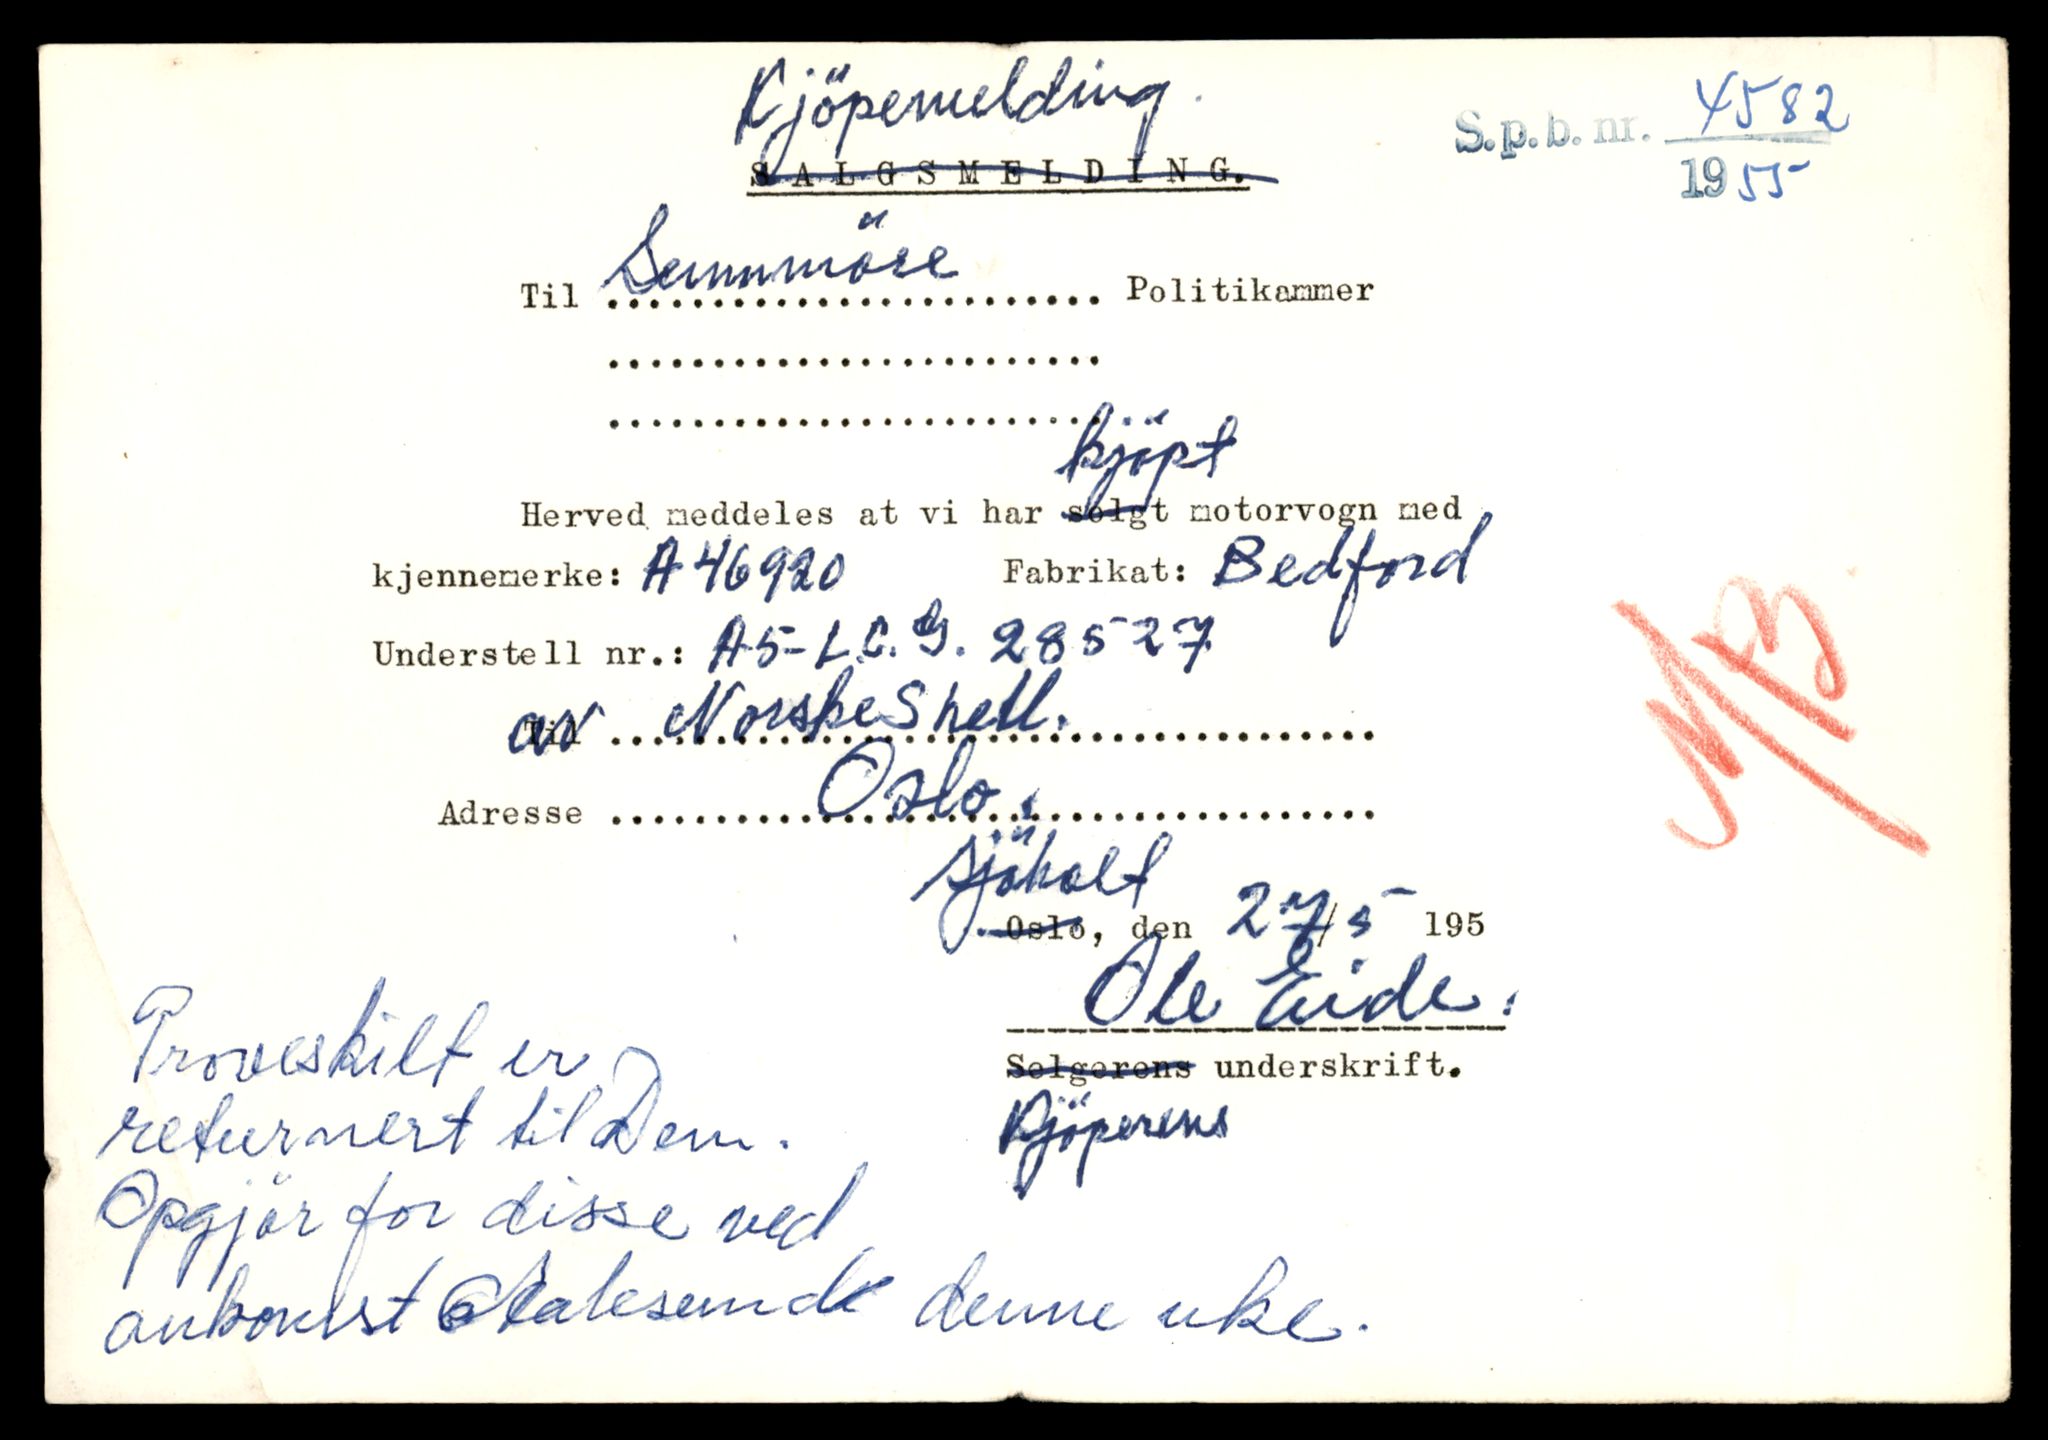 Kjöpemelding.
SALGSMELDING.
S.p.b. nr. 4582
1955
Til Sunnmöre Politikammer
kjöpt
Herved meddeles at vi har solgt motorvogn med
kjennemerke: A 46920 Fabrikat: Bedford
Understell nr.: A5-L.C.G. 28527
av Til Norske Shell.
Adresse Oslo.
Sjöholt
Oslo, den 27/5 195
Ole Eide.
Selgerens underskrift.
Kjöperens
Pröveskilt er
returnert til Dem.
Opgjör for disse ved
ankomst Aalesund denne uke.